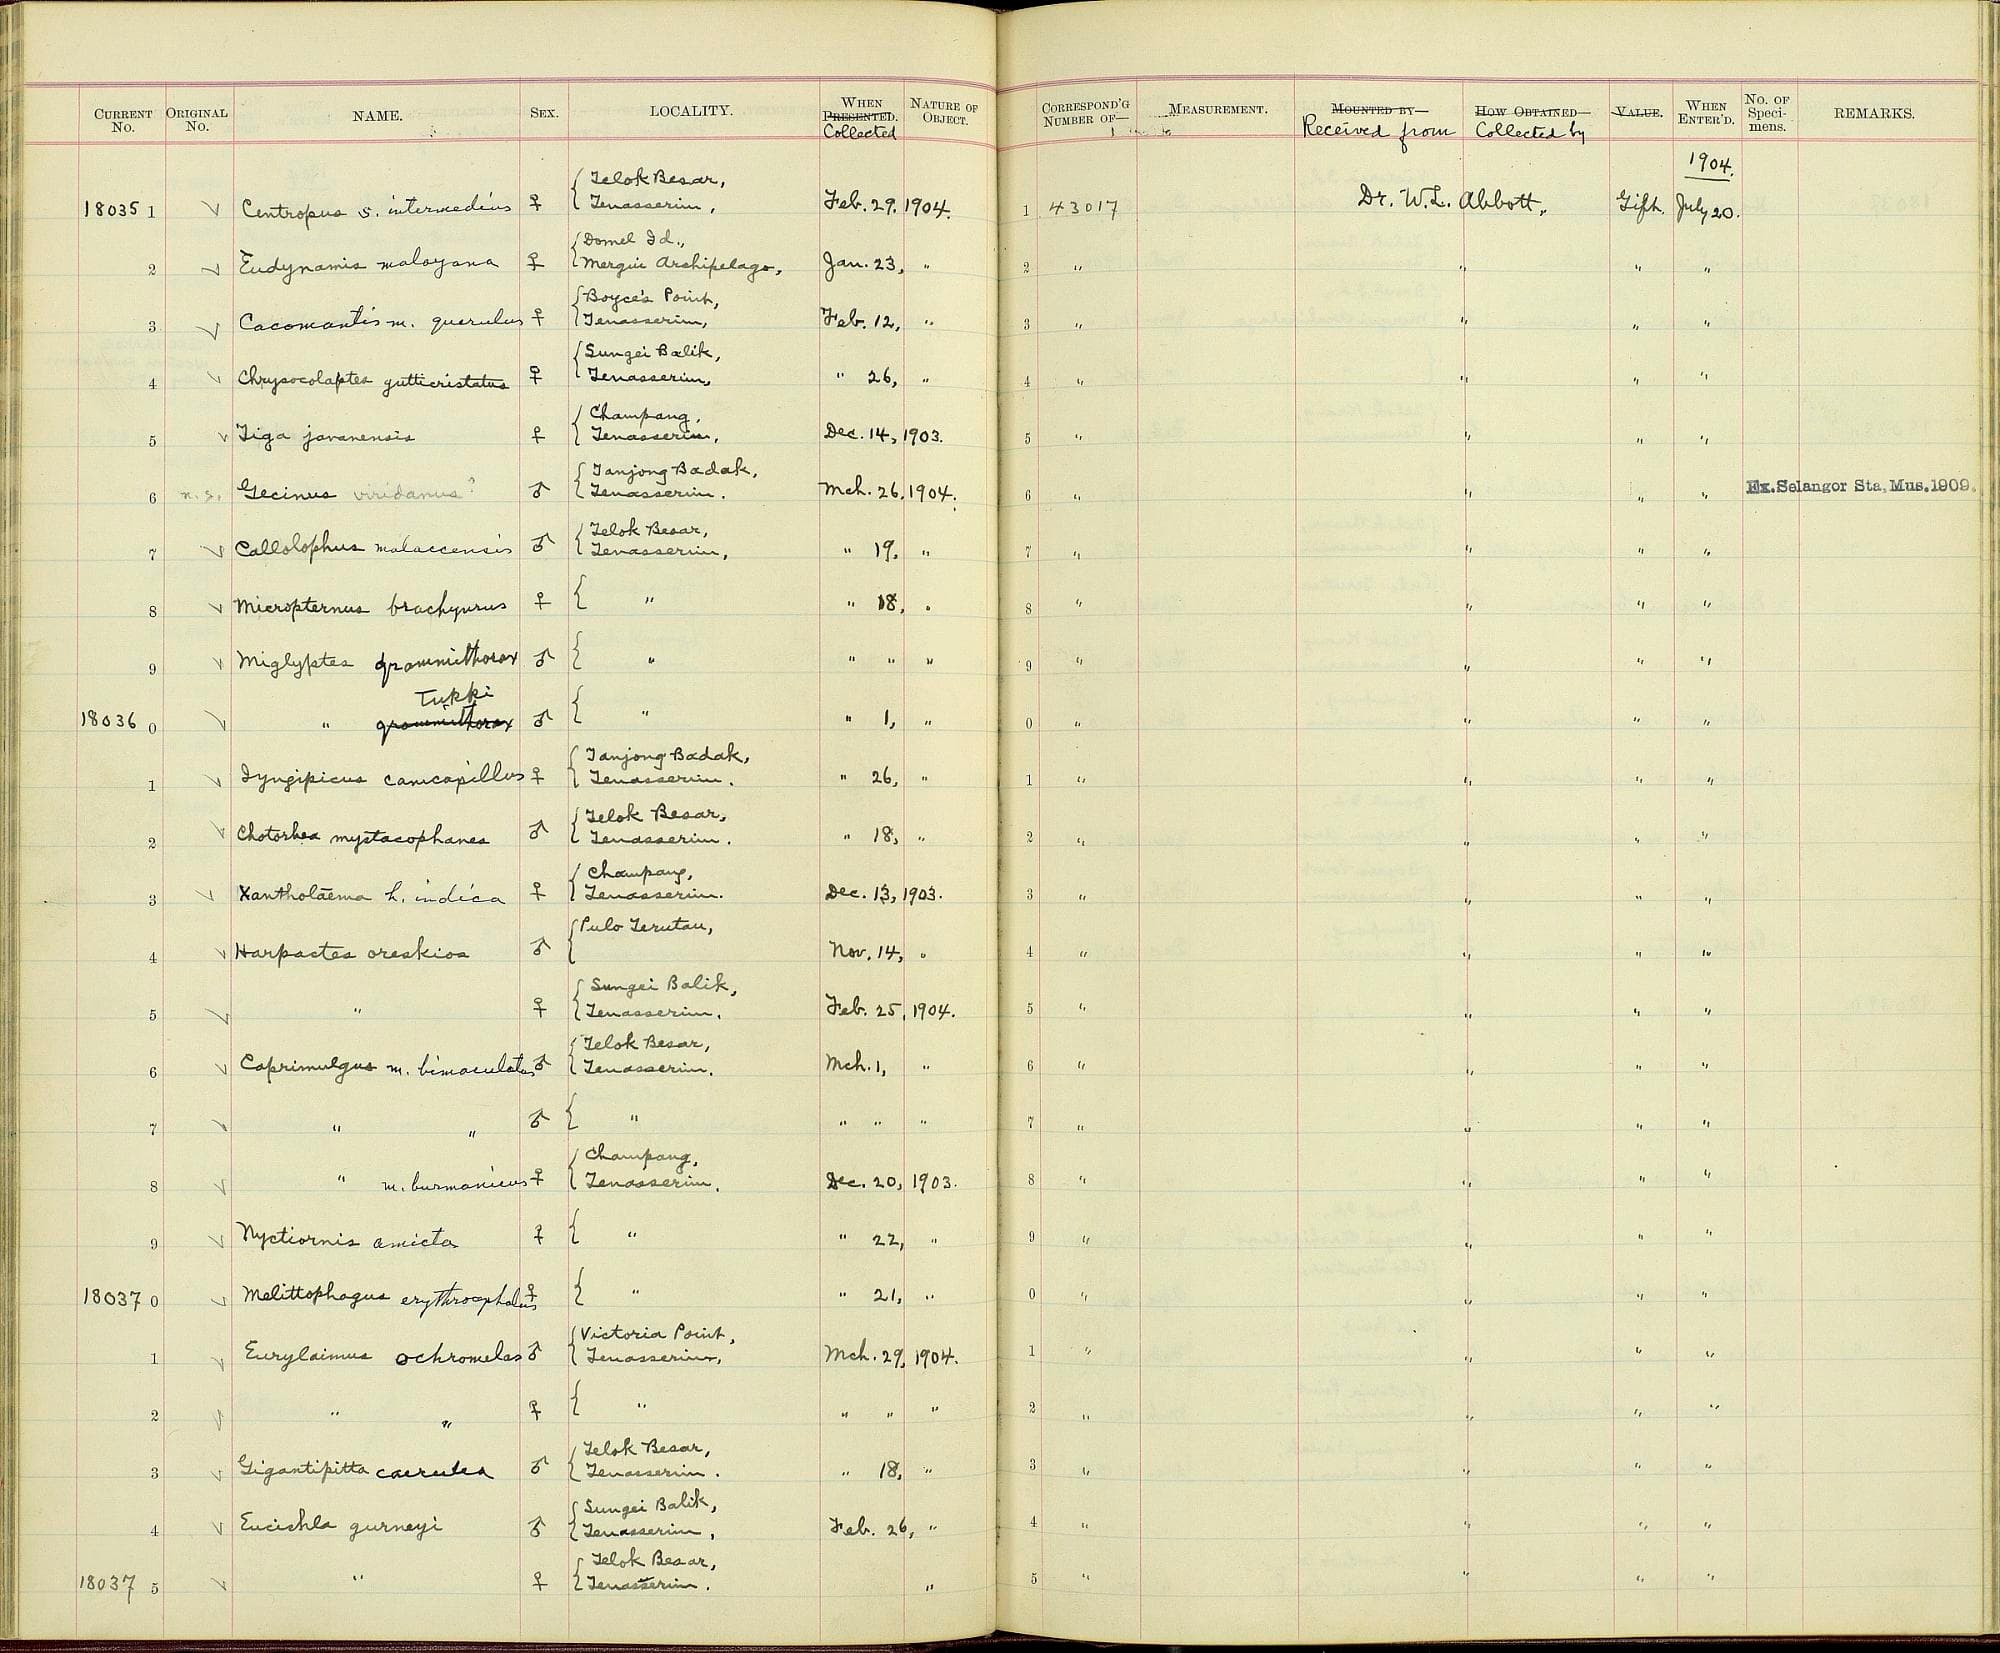 CURRENT No. ORIGINAL No. NAME. SEX. LOCALITY. WHEN PRESENTED. Collected NATURE OF OBJECT. CORRESPOND'G NUMBER OF— MEASUREMENT. MOUNTED BY— Received from HOW OBTAINED— Collected by VALUE. WHEN ENTER'D. No. OF Speci-mens. REMARKS.
1904.
18035 1 ✓ Centropus s. intermedius ♀ { Telok Besar, Tenasserim, Feb. 29. 1904. 1 43017 Dr. W. L. Abbott, Gift. July 20.
2 ✓ Eudynamis malayana ♀ { Domel Id., Mergui Archipelago, Jan. 23, " 2 " " " "
3 ✓ Cacomantis m. querulus ♀ { Boyce's Point, Tenasserim, Feb. 12, " 3 " " " "
4 ✓ Chrysocolaptes gutticristatus ♀ { Sungei Balik, Tenasserim, " 26, " 4 " " " "
5 ✓ Tiga javanensis ♀ { Champang, Tenasserim, Dec. 14, 1903. 5 " " " "
6 n.s. Gecinus viridanus? ♂ { Tanjong Badak, Tenasserim. Mch. 26, 1904. 6 " " " " Ex. Selangor Sta. Mus. 1909.
7 ✓ Callolophus malaccensis ♂ { Telok Besar, Tenasserim, " 19, " 7 " " " "
8 ✓ Micropternus brachyurus ♀ { " " 18, " 8 " " " "
9 ✓ Miglyptes grammithorax ♂ { " " " " 9 " " " "
Tukki
18036 0 ✓ " grammithorax ♂ { " " 1, " 0 " " " "
1 ✓ Iyngipicus canicapillus ♀ { Tanjong Badak, Tenasserim. " 26, " 1 " " " "
2 ✓ Chotorhea mystacophanes ♂ { Telok Besar, Tenasserim. " 18, " 2 " " " "
3 ✓ Xantholaema h. indica ♀ { Champang, Tenasserim. Dec. 13, 1903. 3 " " " "
4 ✓ Harpactes oreskios ♂ { Pulo Terutau, Nov. 14, " 4 " " " "
5 ✓ " ♀ { Sungei Balik, Tenasserim. Feb. 25, 1904. 5 " " " "
6 ✓ Caprimulgus m. bimaculatus ♂ { Telok Besar, Tenasserim. Mch. 1, " 6 " " " "
7 ✓ " " ♂ { " " " " 7 " " " "
8 ✓ " m. burmanicus ♀ { Champang, Tenasserim. Dec. 20, 1903. 8 " " " "
9 ✓ Nyctiornis amicta ♀ { " " 22, " 9 " " " "
18037 0 ✓ Melittophagus erythrocephalus ♀ { " " 21, " 0 " " " "
1 ✓ Eurylaimus ochromelas ♂ { Victoria Point, Tenasserim, Mch. 29, 1904. 1 " " " "
2 ✓ " " ♀ { " " " " 2 " " " "
3 ✓ Gigantipitta caerulea ♂ { Telok Besar, Tenasserim. " 18, " 3 " " " "
4 ✓ Eucichla gurneyi ♂ { Sungei Balik, Tenasserim, Feb. 26, " 4 " " " "
18037 5 ✓ " ♀ { Telok Besar, Tenasserim. " 5 " " " "